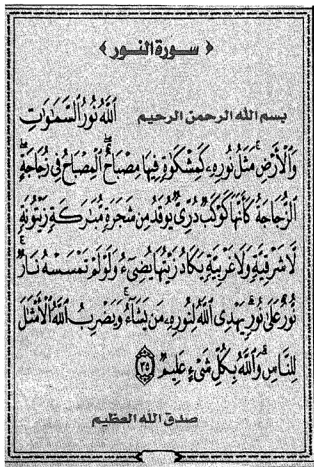 ﴿ سورة النور ﴾
بسم الله الرحمن الرحيم ٱللَّهُ نُورُ ٱلسَّمَٰوَٰتِ
وَٱلْأَرْضِ مَثَلُ نُورِهِۦ كَمِشْكَوٰةٍ فِيهَا مِصْبَاحٌ ٱلْمِصْبَاحُ فِى زُجَاجَةٍ
ٱلزُّجَاجَةُ كَأَنَّهَا كَوْكَبٌ دُرِّىٌّ يُوقَدُ مِن شَجَرَةٍ مُّبَٰرَكَةٍ زَيْتُونَةٍ
لَّا شَرْقِيَّةٍ وَلَا غَرْبِيَّةٍ يَكَادُ زَيْتُهَا يُضِىٓءُ وَلَوْ لَمْ تَمْسَسْهُ نَارٌ
نُّورٌ عَلَىٰ نُورٍ يَهْدِى ٱللَّهُ لِنُورِهِۦ مَن يَشَآءُ وَيَضْرِبُ ٱللَّهُ ٱلْأَمْثَٰلَ
لِلنَّاسِ وَٱللَّهُ بِكُلِّ شَىْءٍ عَلِيمٌ ﴿٣٥﴾
صدق الله العظيم